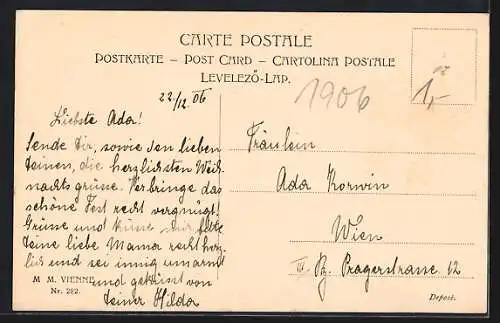 CARTE POSTALE
POSTKARTE – POST CARD – CARTOLINA POSTALE
LEVELEZŐ-LAP.
22/12. 06
1906
1,-
Liebste Ada!
Sende Dir, sowie den lieben
Deinen, die herzlichsten Weih-
nachtsgrüsse. Verbringe das
schöne Fest recht vergnügt!
Grüsse und küsse mir bitte
Deine liebe Mama recht herz-
lich und sei innig umarmt
und geküsst von
Deiner Hilda
Fräulein
Ada Korwin
Wien
III. Bz. Pragerstrasse 12
M. M. VIENNE
Nr. 282.
Depost.